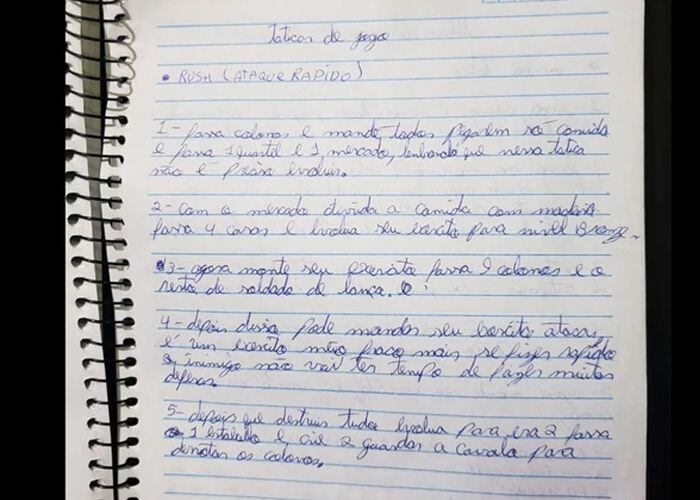 Taticas de jogo
• RUSH (ATAQUE RAPIDO)
1- faça colonos e mande todos pegarem só comida
e faça 1 quartel e 1 mercado, lembrando que nessa tatica
não é preciso evoluir.
2- Com o mercado divida a comida com madeira
faça 4 casas e Evolua seu exercito para nivel Bronze.
3- agora monte seu exercito faça 9 colonos e o
resto de soldado de lança.
4- depois disso pode mandar seu exercito atacar,
é um exercito meio fraco mais se fizer rapido
o inimigo não vai ter tempo de fazer muitas
defesas.
5- depois que destruir tudo Evolua para era 2 faça
1 estabulo e crie 2 guardas a cavalo para
derrotar os colonos.